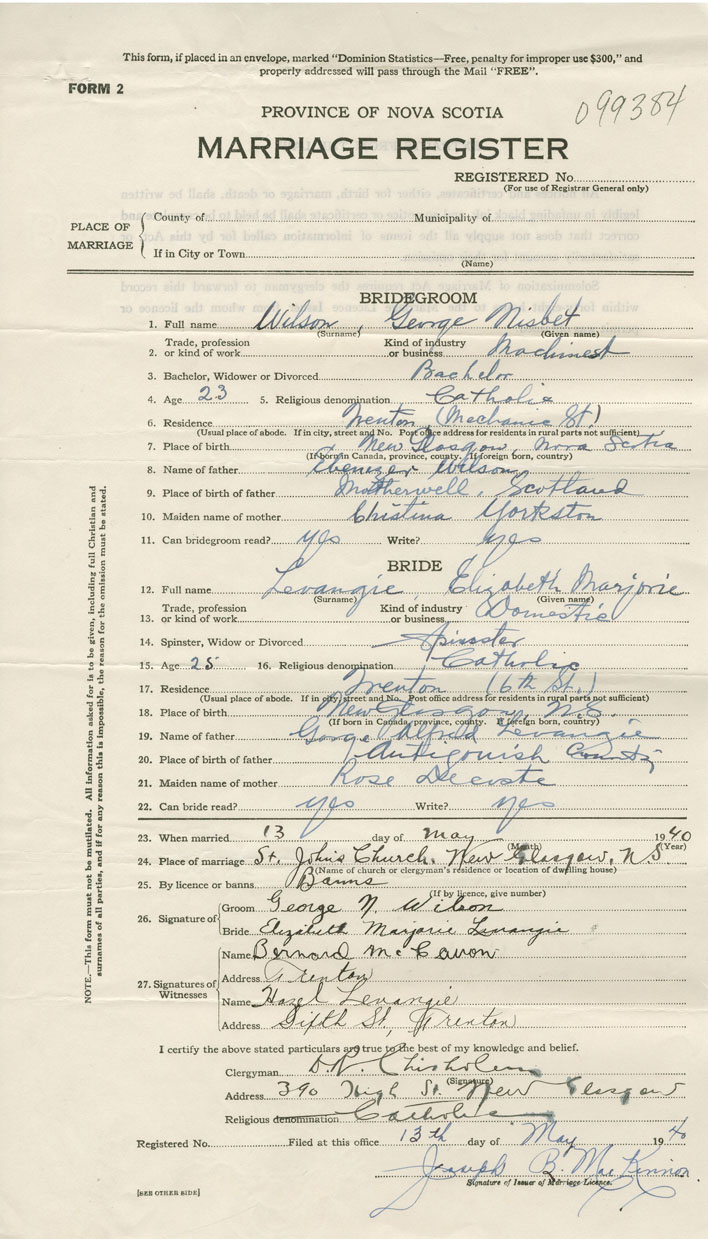 This form, if placed in an envelope, marked "Dominion Statistics—Free, penalty for improper use $300," and
properly addressed will pass through the Mail "FREE".
FORM 2
099384
PROVINCE OF NOVA SCOTIA
MARRIAGE REGISTER
REGISTERED No.
(For use of Registrar General only)
PLACE OF MARRIAGE
County of Municipality of
If in City or Town
(Name)
BRIDEGROOM
1. Full name Wilson, George Nisbet
(Surname) (Given name)
2. Trade, profession or kind of work Kind of industry or business Machinest
3. Bachelor, Widower or Divorced Bachelor
4. Age 23 5. Religious denomination Catholic
6. Residence Trenton (Mechanic St.)
(Usual place of abode. If in city, street and No. Post office address for residents in rural parts not sufficient)
7. Place of birth New Glasgow, Nova Scotia
(If born in Canada, province, county. If foreign born, country)
8. Name of father Ebenezer Wilson
9. Place of birth of father Motherwell, Scotland
10. Maiden name of mother Christina Yorkston
11. Can bridegroom read? yes Write? yes
BRIDE
12. Full name Levangie, Elizabeth Marjorie
(Surname) (Given name)
13. Trade, profession or kind of work Kind of industry or business Domestic
14. Spinster, Widow or Divorced Spinster
15. Age 25 16. Religious denomination Catholic
17. Residence Trenton (6th St.)
(Usual place of abode. If in city, street and No. Post office address for residents in rural parts not sufficient)
18. Place of birth New Glasgow, N.S.
(If born in Canada, province, county. If foreign born, country)
19. Name of father George Alfred Levangie
20. Place of birth of father Antigonish County
21. Maiden name of mother Rose Decoste
22. Can bride read? yes Write? yes
23. When married 13 day of May 1940
(Month) (Year)
24. Place of marriage St. John's Church, New Glasgow, N.S.
(Name of church or clergyman's residence or location of dwelling house)
25. By licence or banns Banns
(If by licence, give number)
26. Signature of
Groom George N. Wilson
Bride Elizabeth Marjorie Levangie
27. Signatures of Witnesses
Name Bernard
Address Trenton
Name Hazel Levangie
Address Sixth St, Trenton
I certify the above stated particulars are true to the best of my knowledge and belief.
Clergyman Chisholm
(Signature)
Address 390 High St. New Glasgow
Religious denomination Catholic
Registered No. Filed at this office 13th day of May 1940
Joseph B. MacKinnon
Signature of Issuer of Marriage Licence.
[SEE OTHER SIDE]
NOTE.—This form must not be mutilated. All information asked for is to be given, including full Christian and
surnames of all parties, and if for any reason this is impossible, the reason for the omission must be stated.